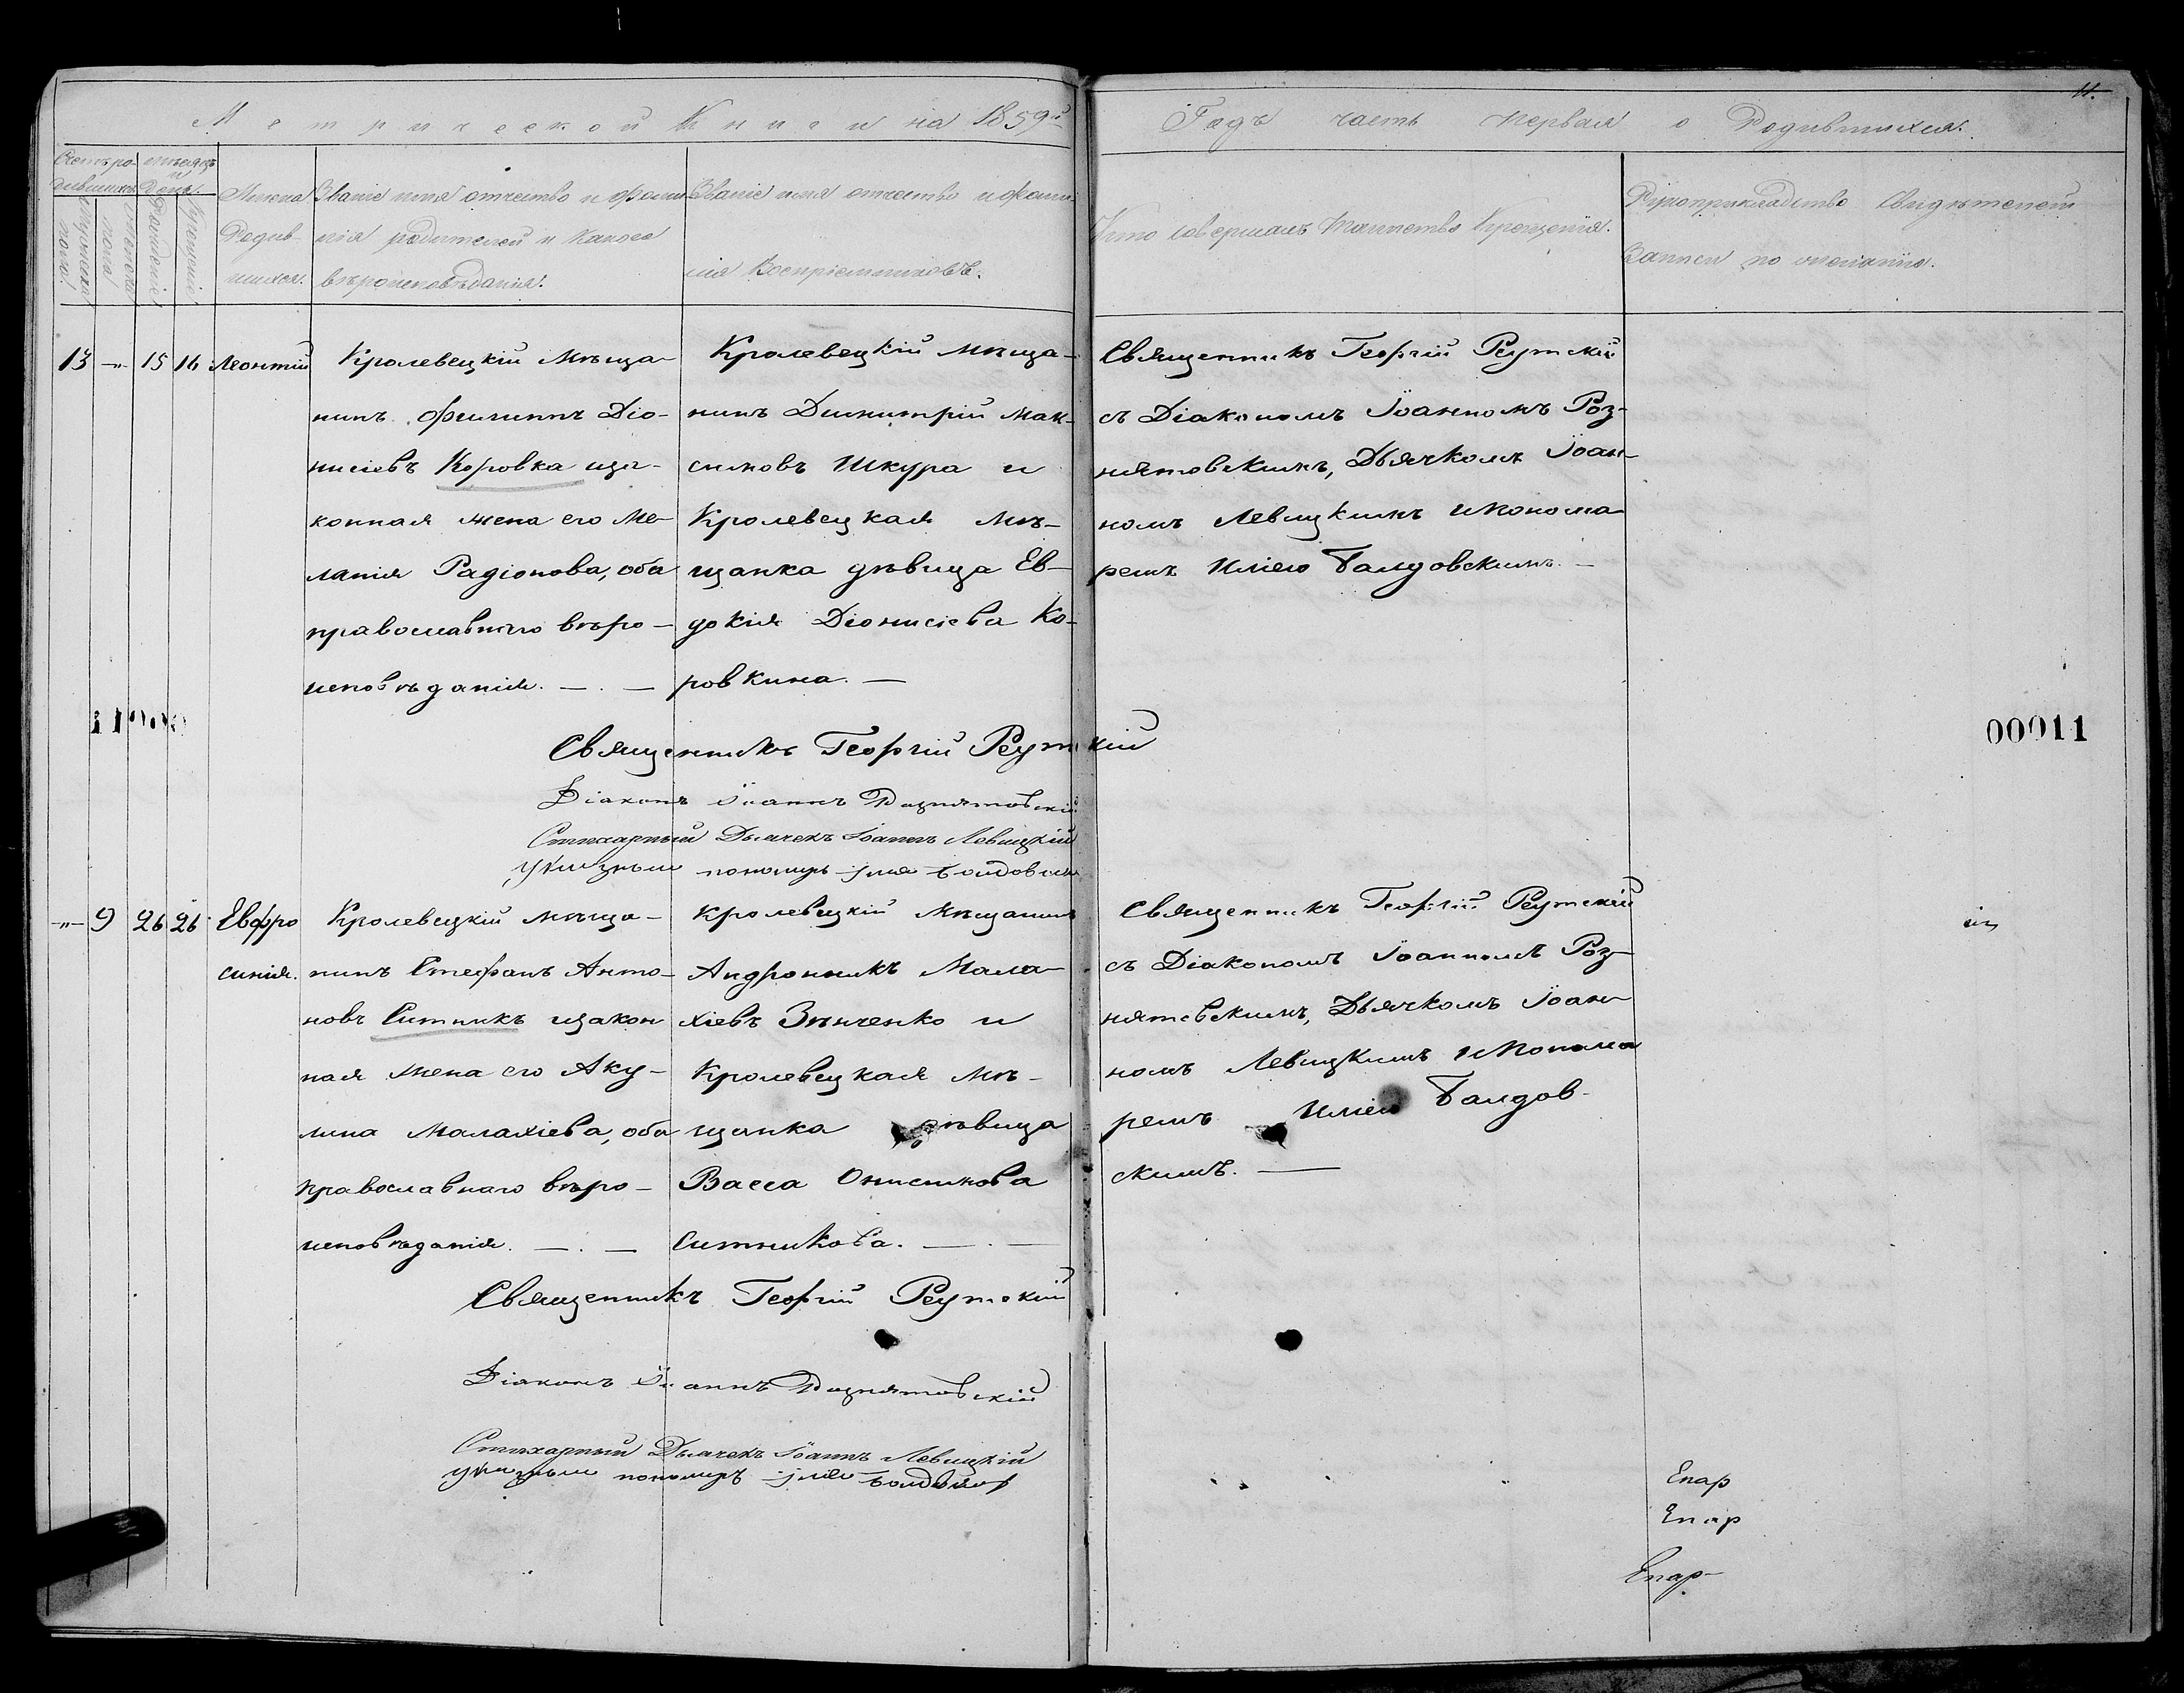 Метрической Книги на 1859й
Годъ часть первая о Родившихся.
11.
Счетъ ро-
дившихся.
Мѣсяцъ
и
День.
Мужеска
пола.
Женска
пола.
Рожденія
Крещенія
Имена
Родив-
шихся.
Званіе имя отчество и фами-
лія родителей и какого
вѣроисповѣданія.
Званіе имя отчество и фами-
лія Воспріемниковъ.
Кто совершалъ таинство Крещенія.
Рукоприкладство Свидѣтелей
Записи по желанію.
13 -"- 15 16 Леонтій
Кролевецкій Мѣща-
нинъ Филиппъ Діо-
нисіевъ Коровка иза-
конная жена его Ме-
ланія Радіонова, оба
православнаго вѣро-
исповѣданія. — . —
Кролевецкій мѣща-
нинъ Димитрій Мак-
симовъ Шкура и
Кролевецкая мѣ-
щанка дѣвица Ев-
докія Діонисіева Ко-
ровкина. —
Священникъ Георгій Реутскій
съ Діакономъ Іоанномъ Роз-
нятовскимъ, Дьячкомъ Іоан-
номъ Левицкимъ и Понома-
ремъ Иліею Балдовскимъ. —
00011
Священникъ Георгій Реутскій
Діаконъ Іоаннъ Рознятовскій
Стихарный Дьячекъ Іоаннъ Левицкій
указный пономарь Илія Болдовскій
-"- 9 26 26 Евфро
синія.
Кролевецкій мѣща-
нинъ Стефанъ Анто-
новъ Ситникъ изакон
ная жена его Аку-
лина Малахіева, оба
православнаго вѣро-
исповѣданія. — . —
Кролевецкій Мѣщанинъ
Андроникъ Мала-
хіевъ Зѣнченко и
Кролевецкая мѣ-
щанка дѣвица
Васса Онисимова
Ситникова. — . —
Священникъ Георгій Реутскій
съ Діакономъ Іоанномъ Роз-
нятовскимъ, Дьячкомъ Іоан-
номъ Левицкимъ и Понома
ремъ Иліею Балдов-
скимъ. —
Священникъ Георгій Реутскій
Діаконъ Іоаннъ Рознятовскій
Стихарный Дьячекъ Іоаннъ Левицкій
указный пономарь Илія
Епар
Епар
Епар-